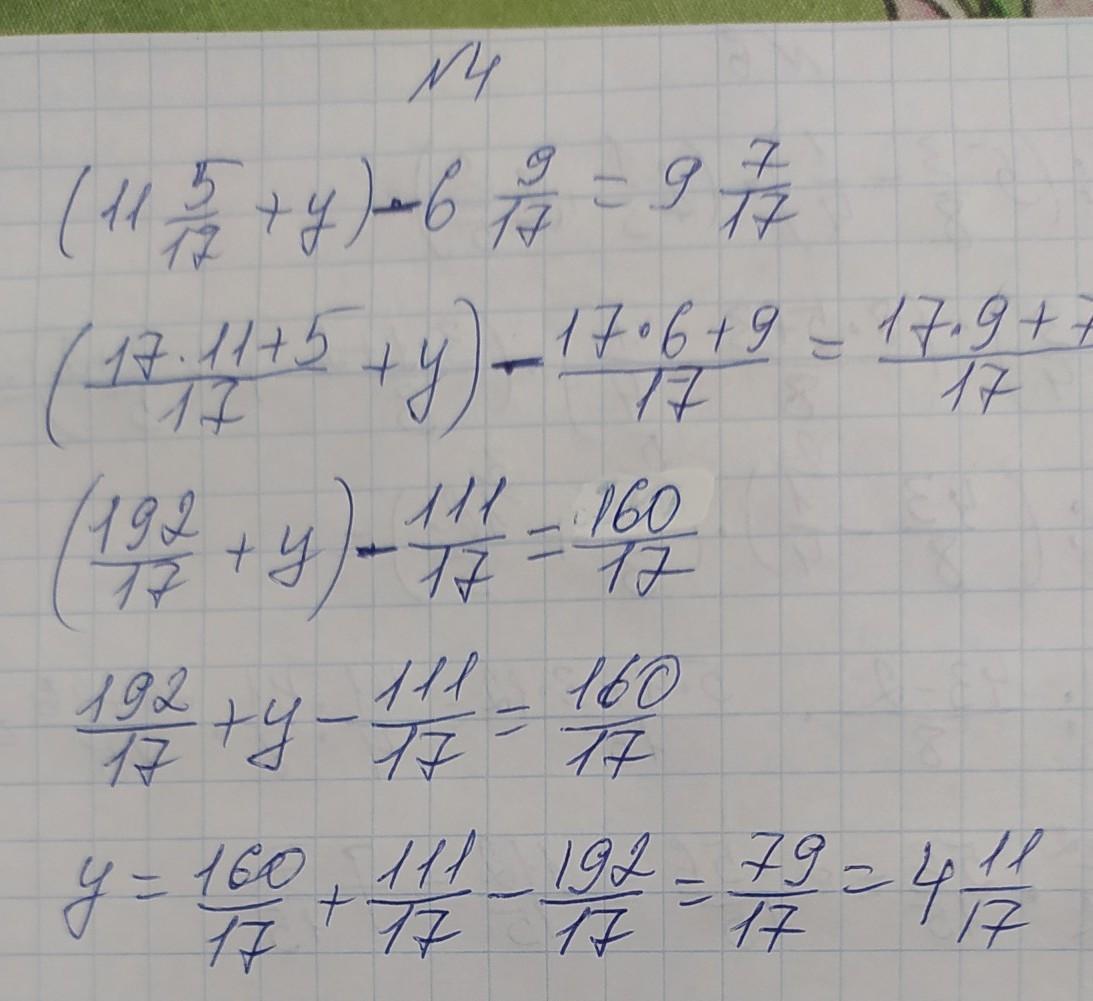 №4
(11 5/17 + y) - 6 9/17 = 9 7/17
(17·11+5/17 + y) - 17·6+9/17 = 17·9+7/17
(192/17 + y) - 111/17 = 160/17
192/17 + y - 111/17 = 160/17
y = 160/17 + 111/17 - 192/17 = 79/17 = 4 11/17